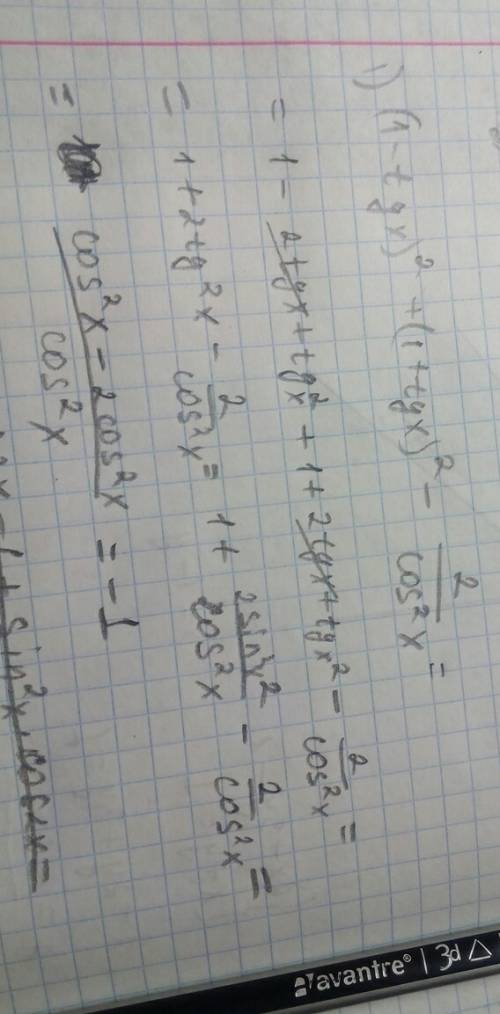 1) (1-tgx)² + (1+tgx)² - 2/cos²x =
= 1 - 2tgx + tgx² + 1 + 2tgx + tgx² - 2/cos²x =
= 1 + 2tg²x - 2/cos²x = 1 + 2sinx²/cos²x - 2/cos²x =
= cos²x - 2cos²x/cos²x = -1
sin²x · cos²x =
avantre® | 3d